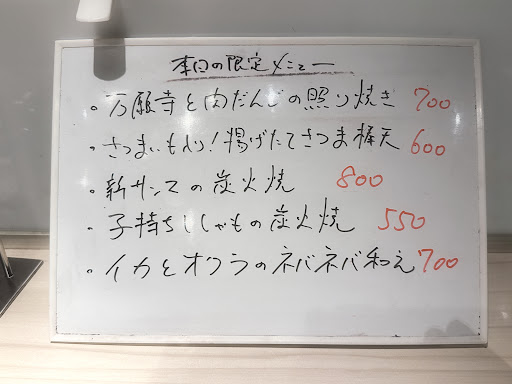 本日の限定メニュー
・万願寺と肉だんごの照り焼き 700
・さつまいも入り！揚げたてさつま棒天 600
・新サンマの炭火焼 800
・子持ちししゃもの炭火焼 550
・イカとオクラのネバネバ和え 700